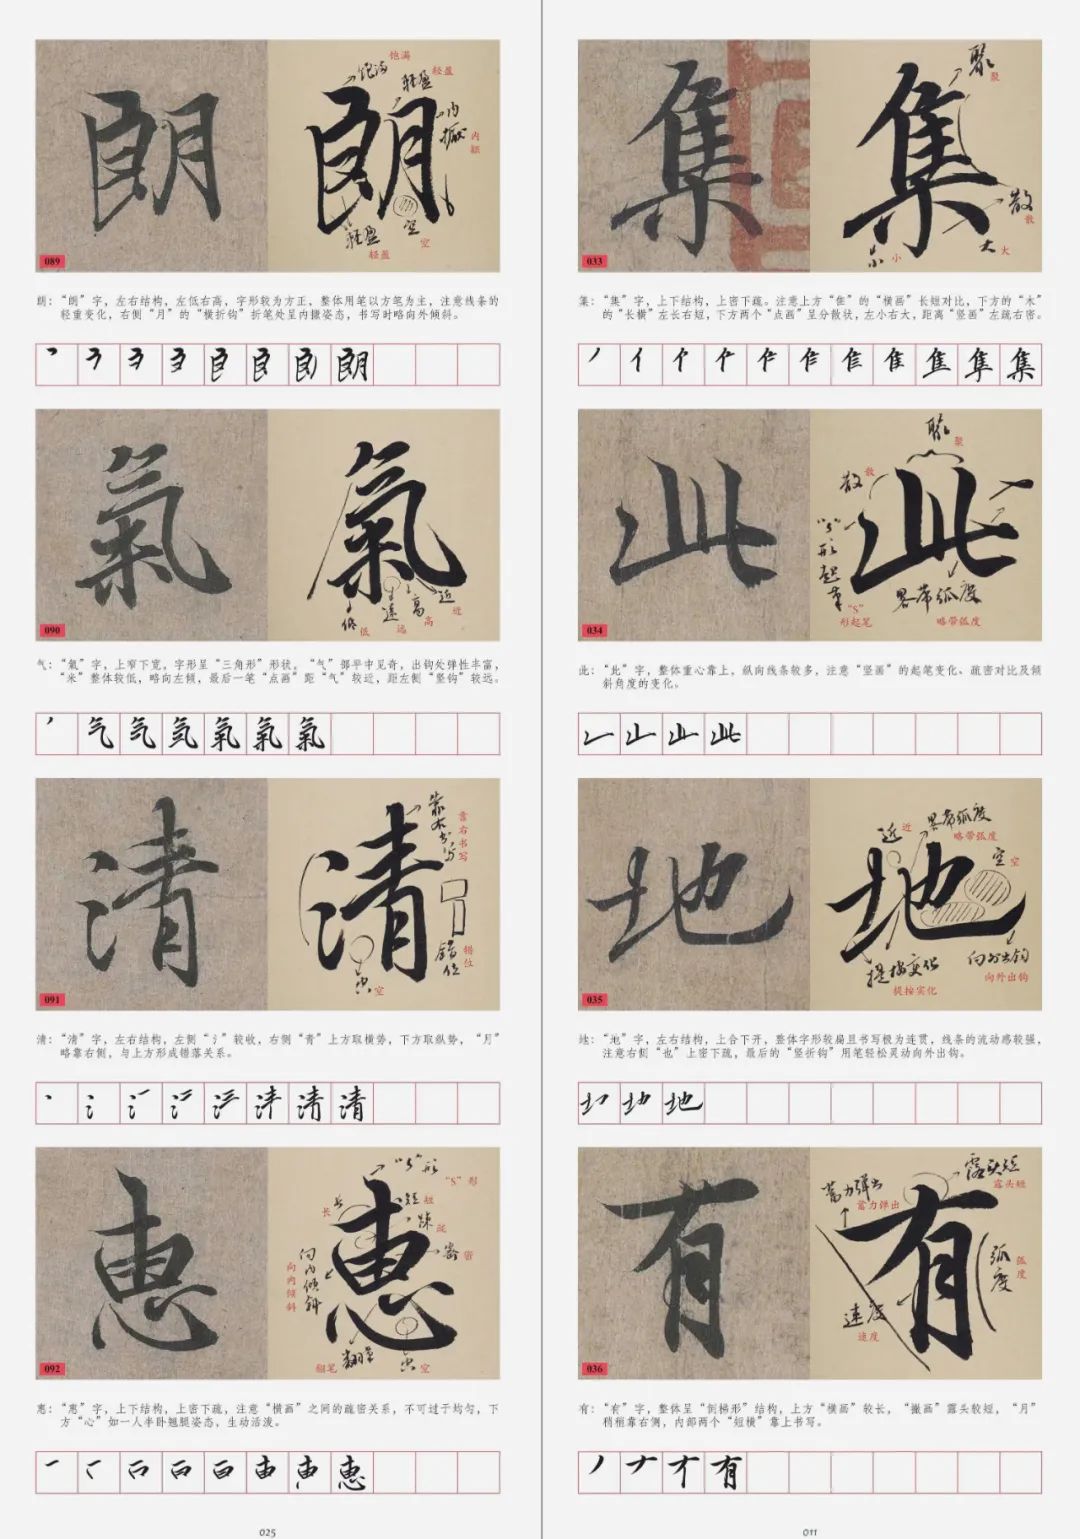 朗
饱满
饱满
轻盈
轻盈
朗
内擫
内擫
轻盈
轻盈
空
空
089
朗：“朗”字，左右结构，左低右高，字形较为方正，整体用笔以方笔为主，注意线条的
轻重变化，右侧“月”的“横折钩”折笔处呈内擫姿态，书写时略向外倾斜。
朗
氣
氣
低
低
远
远
高
高
近
近
090
气：“氣”字，上窄下宽，字形呈“三角形”形状。“气”部平中见奇，出钩处弹性丰富，
“米”整体较低，略向左倾，最后一笔“点画”距“气”较近，距左侧“竖钩”较远。
气 氣
清
清
靠右书写
靠右书写
错位
错位
空
空
091
清：“清”字，左右结构，左侧“氵”较收，右侧“青”上方取横势，下方取纵势，“月”
略靠右侧，与上方形成错落关系。
清
惠
惠
“S”形
“S”形
长
长
短
短
疎
疏
密
密
向内倾斜
向内倾斜
翻笔
翻笔
空
空
092
惠：“惠”字，上下结构，上密下疏，注意“横画”之间的疏密关系，不可过于均匀，下
方“心”如一人半卧翘腿姿态，生动活泼。
惠
025
集
集
聚
聚
散
散
小
小
大
大
033
集：“集”字，上下结构，上密下疏。注意上方“隹”的“横画”长短对比，下方的“木”
的“长横”左长右短，下方两个“点画”呈分散状，左小右大，距离“竖画”左疏右密。
集
此
此
聚
聚
散
散
“S”形起笔
“S”
形起笔
略带弧度
略带弧度
034
此：“此”字，整体重心靠上，纵向线条较多，注意“竖画”的起笔变化、疏密对比及倾
斜角度的变化。
此
地
地
近
近
略带弧度
略带弧度
空
空
提按变化
提按实化
向外出钩
向外出钩
035
地：“地”字，左右结构，上合下开，整体字形较扁且书写极为连贯，线条的流动感较强，
注意右侧“也”上密下疏，最后的“竖折钩”用笔轻松灵动向外出钩。
地
有
有
蓄力弹出
蓄力弹出
露头短
露头短
弧度
弧度
速度
速度
036
有：“有”字，整体呈“倒梯形”结构，上方“横画”较长，“撇画”露头较短，“月”
稍稍靠右侧，内部两个“短横”靠上书写。
有
011